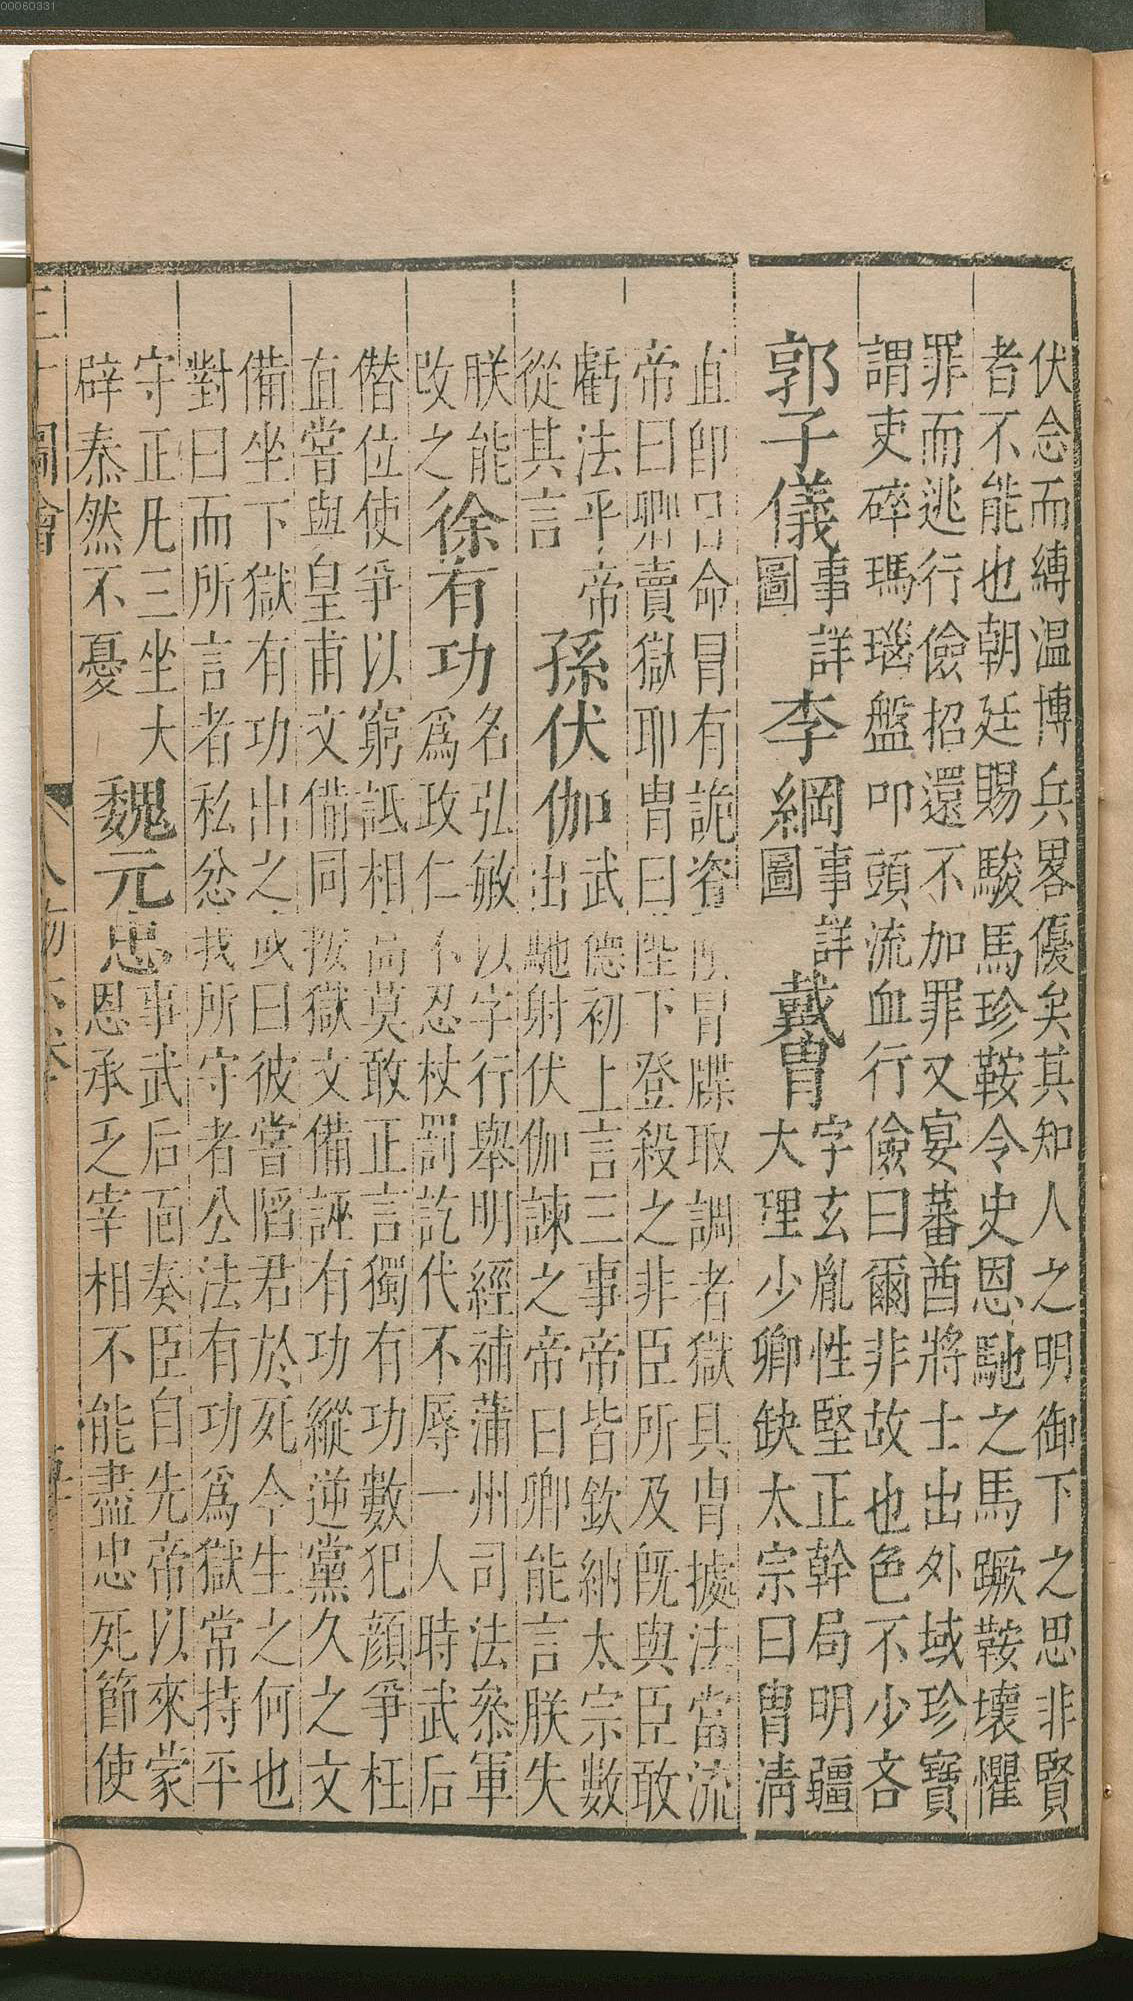 00060331
伏念而縛温博兵畧優矣其知人之明御下之思非賢
者不能也朝廷賜駿馬珍鞍令史恩馳之馬蹶鞍壞懼
罪而逃行儉招還不加罪又宴蕃酋將士出外域珍寶
謂吏碎瑪瑙盤叩頭流血行儉曰爾非故也色不少吝
郭子儀事詳圖李綱事詳圖戴冑字玄胤性堅正幹局明疆
大理少卿缺太宗曰冑清
直即日命冒有詭資冒牒取調者獄具冑據法當流
帝曰卿賣獄耶冑曰陛下登殺之非臣所及既與臣敢
虧法乎帝
從其言孫伏伽武德初上言三事帝皆欽納太宗數
出馳射伏伽諫之帝曰卿能言朕失
朕能
改之徐有功名弘敏以字行舉明經補蒲州司法叅軍
爲政仁不忍杖罰訖代不辱一人時武后
僭位使爭以窮詆相高莫敢正言獨有功數犯顔爭枉
直嘗與皇甫文備同按獄文備誣有功縱逆黨久之文
備坐下獄有功出之或曰彼嘗陷君於死今生之何也
對曰而所言者私忿我所守者公法有功爲獄常持平
守正凡三坐大
辟泰然不憂魏元忠事武后面奏臣自先帝以來蒙
恩承乏宰相不能盡忠死節使
三才圖會 人物